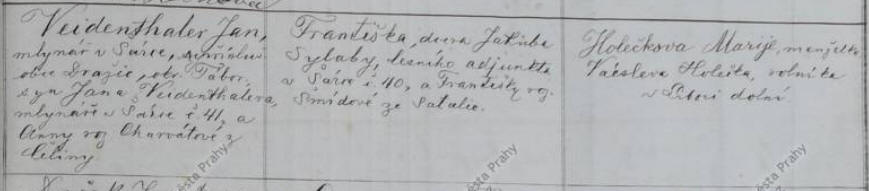 Veidenthaler Jan,
mlynář v Šárce, příslušný
obce Dražic, okr. Tábor,
syn Jana Veidenthalera,
mlynáře v Šárce č. 41, a
Anny roz. Charvátové z
Františka, dcera Jakuba
Sylaby, lesního adjunkta
v Šárce č. 40, a Františky roz.
Šmídové ze Satalic.
Holečkova Marije, manželka
Václava Holečka, rolníka
v dolní
města Prahy
města Prahy
města Prahy